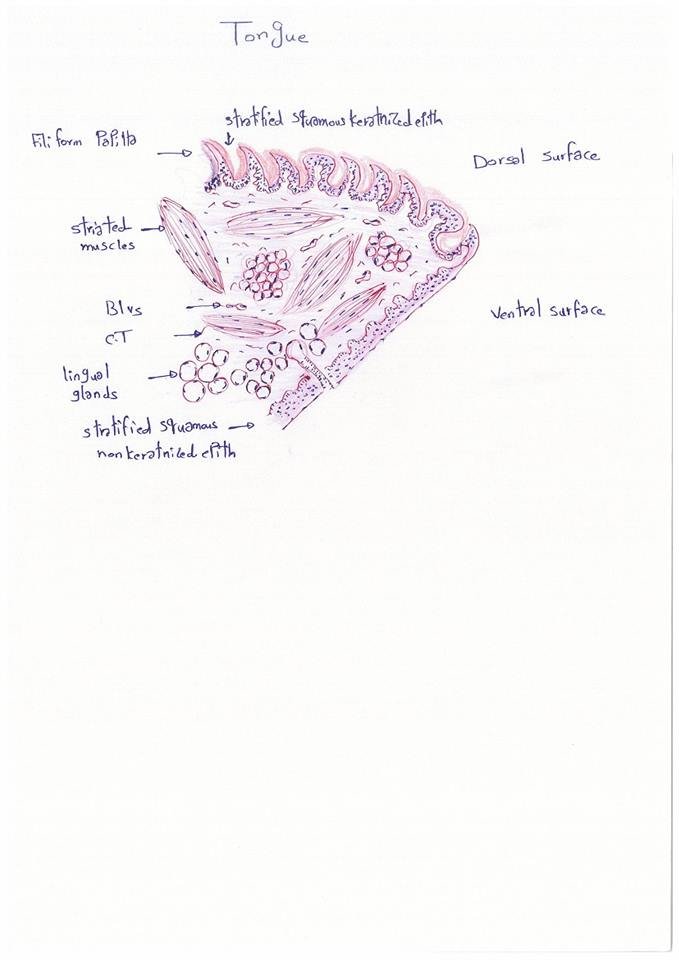 Tongue
stratified squamous keratnized epith
Filiform Papilla
Dorsal surface
striated
muscles
Blvs
C.T
Ventral surface
lingual
glands
stratified squamous
non keratnized epith